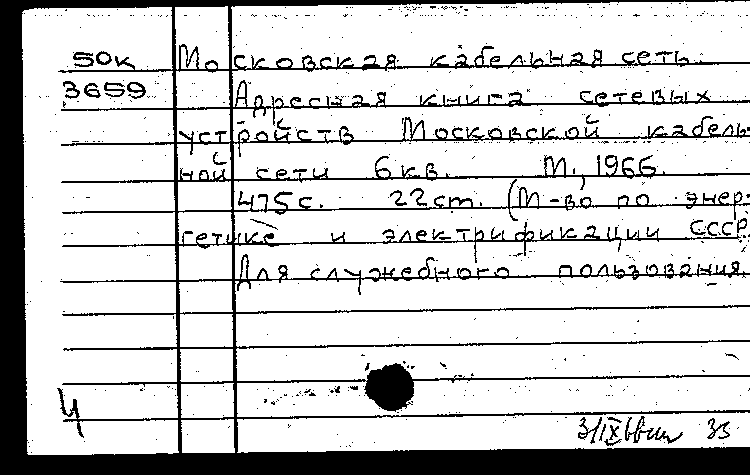 50к Московская кабельная сеть.
3659 Адресная книга сетевых
устройств Московской кабель-
ной сети 6кв. М., 1966.
475с. 22см. (М-во по энер-
гетике и электрификации СССР
Для служебного пользования
Ч
3/IX 66 35